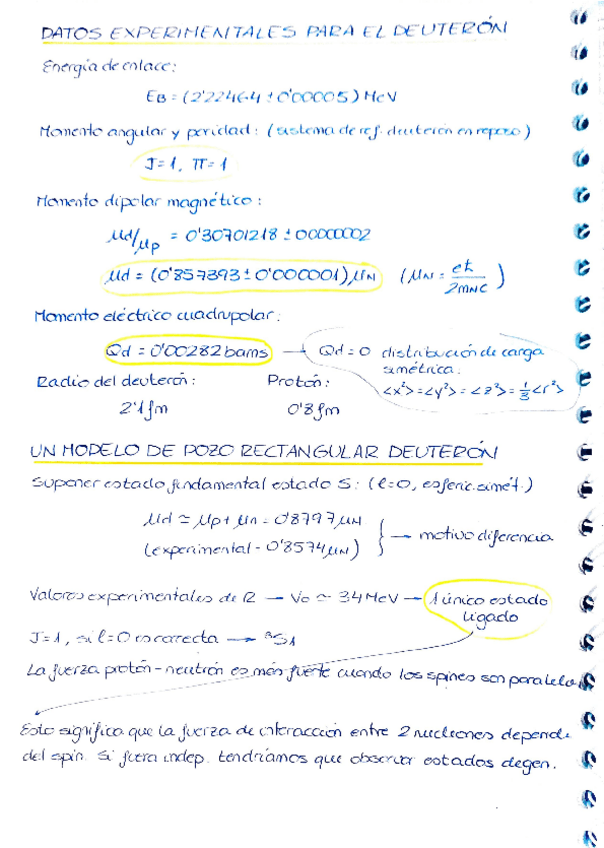 DATOS EXPERIMENTALES PARA EL DEUTERÓN
Energía de enlace:
EB = (2'22464 ± 0'00005) MeV
Momento angular y paridad: (sistema de ref. deuterón en reposo)
J=1, π=1
Momento dipolar magnético:
μd/μp = 0'30701218 ± 0'0000002
μd = (0'857393 ± 0'000001) μN (μN = eħ/2mNc)
Momento eléctrico cuadrupolar:
Qd = 0'00282 barns → Qd = 0 distribución de carga
simétrica:
<x²>=<y²>=<z²>=1/3<r²>
Radio del deuterón: Protón:
2'1 fm 0'8 fm
UN MODELO DE POZO RECTANGULAR DEUTERÓN
Suponer estado fundamental estado S: (l=0, esféric. simét.)
μd ≃ μp + μn = 0'8797 μN
(experimental - 0'8574 μN) } → motivo diferencia
Valores experimentales de R → Vo ≃ 34 MeV → 1 único estado
ligado
J=1, si l=0 es correcta → ³S1
La fuerza protón-neutrón es más fuerte cuando los spines son paralelos
Esto significa que la fuerza de interacción entre 2 nucleones depende
del spin. Si fuera indep. tendríamos que observar estados degen.